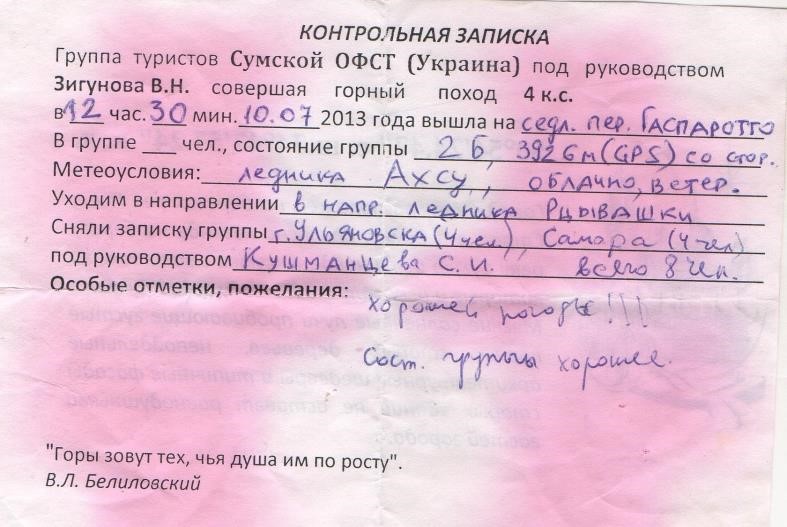 КОНТРОЛЬНАЯ ЗАПИСКА
Группа туристов Сумской ОФСТ (Украина) под руководством
Зигунова В.Н. совершая горный поход 4 к.с.
в 12 час. 30 мин. 10.07 2013 года вышла на седл. пер. Гаспаротто
В группе ___ чел., состояние группы 2Б, 3926м (GPS) со стор.
Метеоусловия: ледника Ахсу, облачно, ветер.
Уходим в направлении в напр. ледника Рцывашки
Сняли записку группы г. Ульяновска (4 чел), Самара (4 чел)
под руководством Кушманцева С. И. всего 8 чел.
Особые отметки, пожелания: хорошей погоды!!!
Сост. группы хорошее.
"Горы зовут тех, чья душа им по росту".
В.Л. Белиловский